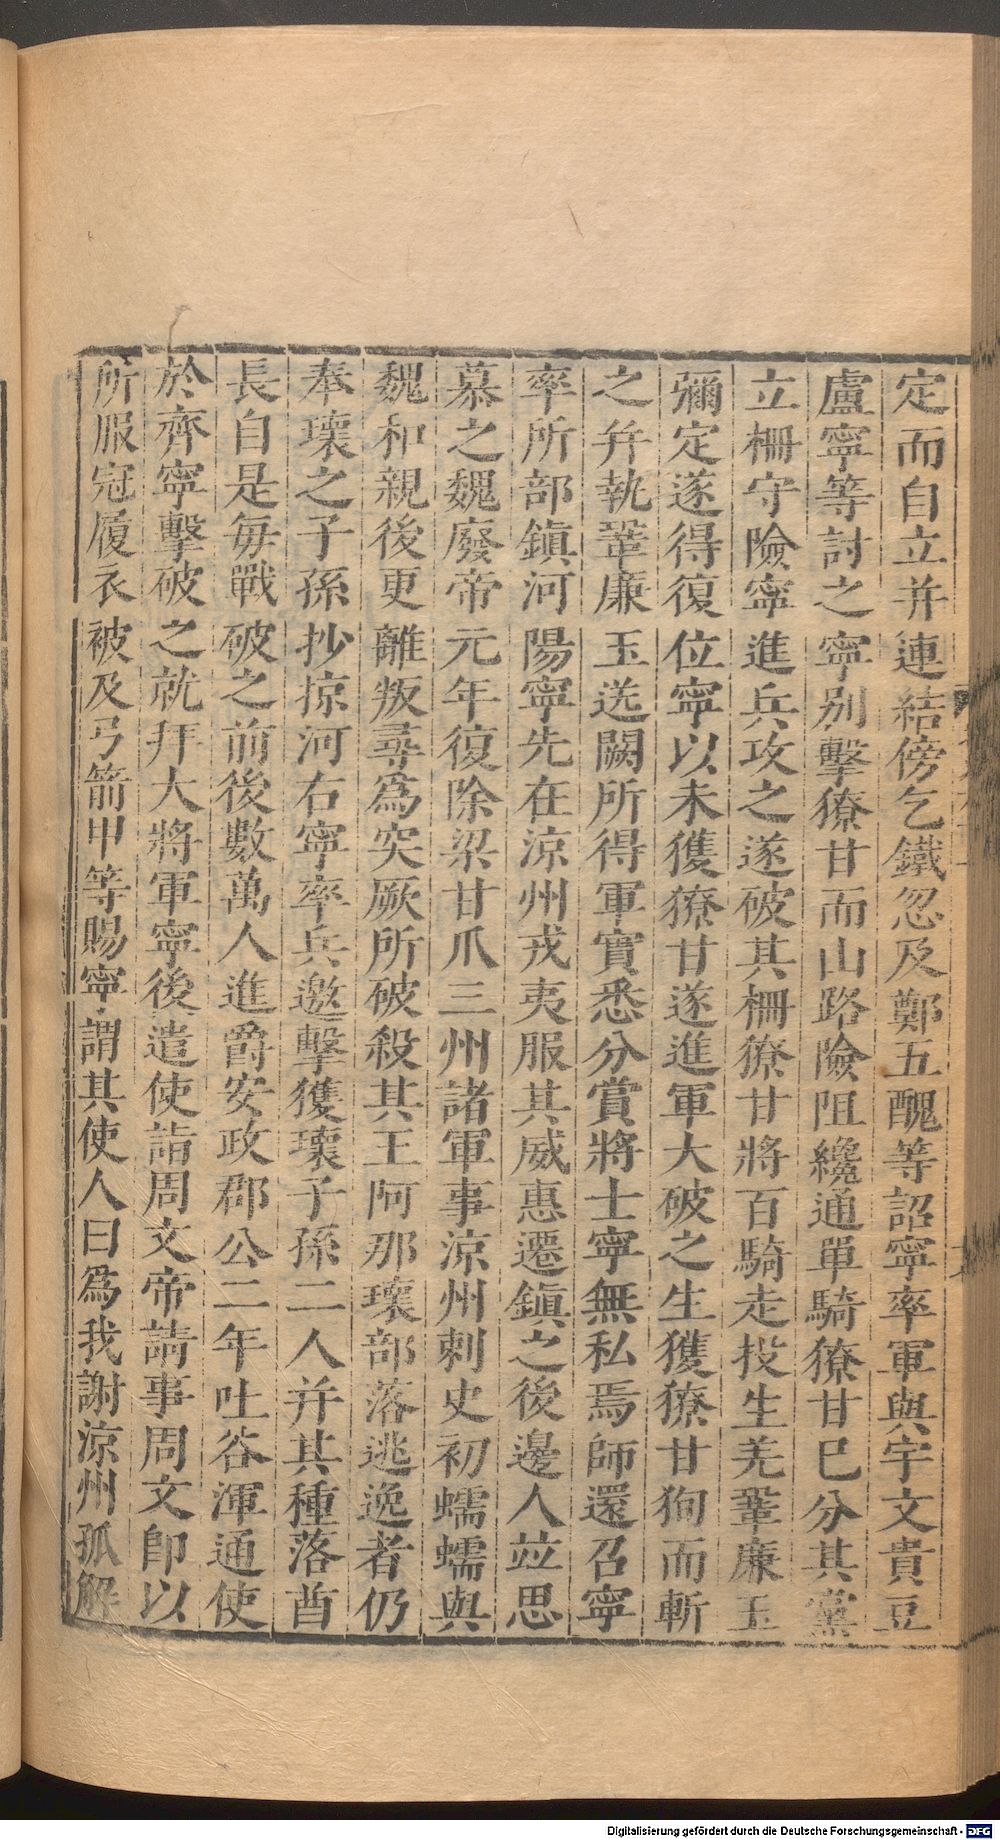 定而自立并連結傍乞鐵忽及鄭五醜等詔寧率軍與宇文貴豆
盧寧等討之寧别擊獠甘而山路險阻纔通單騎獠甘巳分其黨
立柵守險寧進兵攻之遂破其柵獠甘將百騎走投生羌鞏廉玉
彌定遂得復位寧以未獲獠甘遂進軍大破之生獲獠甘狥而斬
之幷執鞏廉玉送闕所得軍實悉分賞將士寧無私焉師還召寧
率所部鎮河陽寧先在涼州戎夷服其威惠遷鎮之後邊人竝思
慕之魏廢帝元年復除梁甘爪三州諸軍事涼州刺史初蠕蠕與
魏和親後更離叛尋爲突厥所破殺其王阿那瓌部落逃逸者仍
奉瓌之子孫抄掠河右寧率兵邀擊獲瓌子孫二人并其種落酋
長自是每戰破之前後數萬人進爵安政郡公二年吐谷渾通使
於齊寧擊破之就拜大將軍寧後遣使詣周文帝請事周文即以
所服冠履衣被及弓箭甲等賜寧謂其使人曰爲我謝涼州孤解
Digitalisierung gefördert durch die Deutsche Forschungsgemeinschaft - DFG